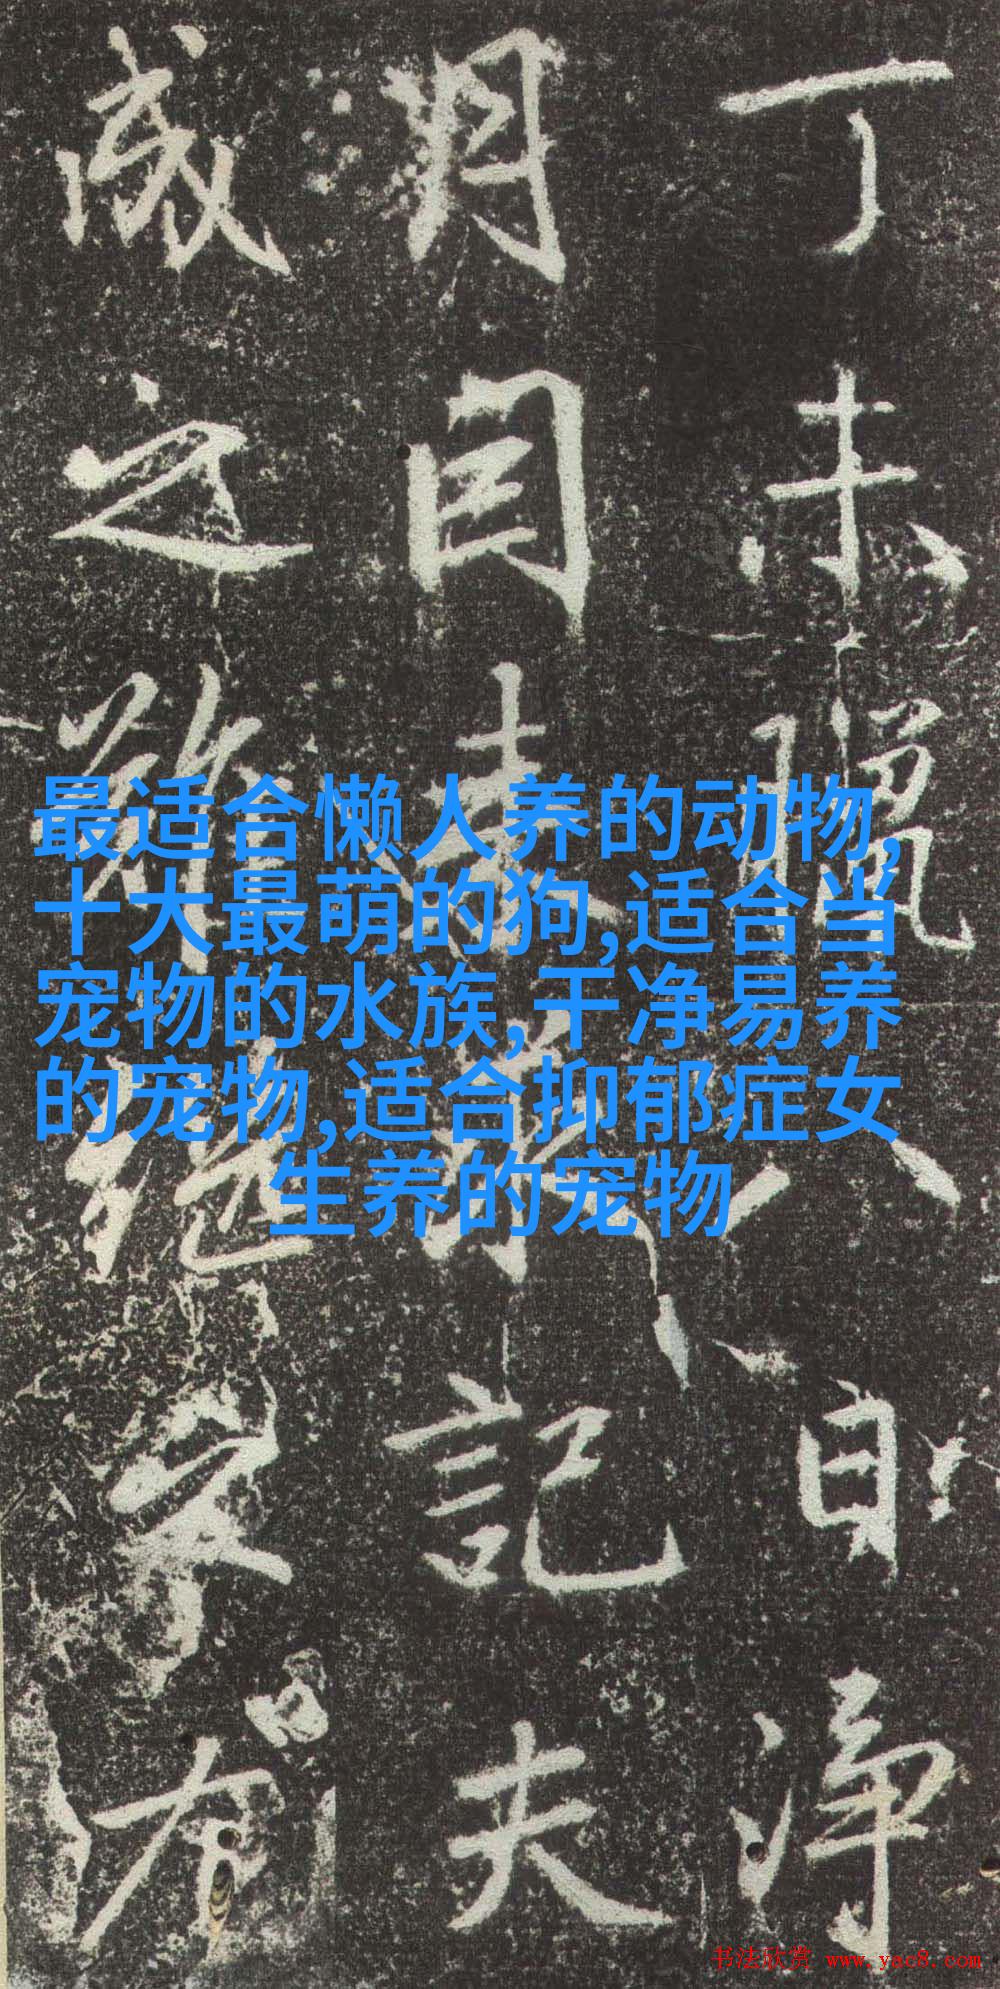 最适合懒人养的动物,
十大最萌的狗,适合当
宠物的水族,干净易养
的宠物,适合抑郁症女
生养的宠物
丁未臘八日淨
月因來求記夫
成之難
书法欣赏 www.yac8.com